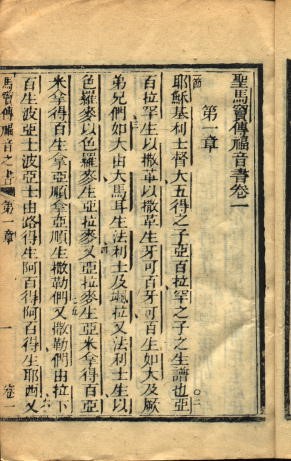 聖馬竇傳福音書卷一
第一章
節
耶穌基利士督大五得之子亞百拉罕之子之生譜也亞
〇二
百拉罕生以撒革以撒革生牙可百牙可百生如大及厥
弟兄們如大由大馬耳生法利士及颯拉又法利士生以
色羅麥以色羅麥生亞拉麥又亞拉麥生亞米拿得百亞
米拿得百生拿亞順拿亞順生撒勒們又撒勒們由拉下
百生波亞士波亞士由路得生阿百得阿百得生耶西又
馬竇傳福音之書 第一章 一 卷一